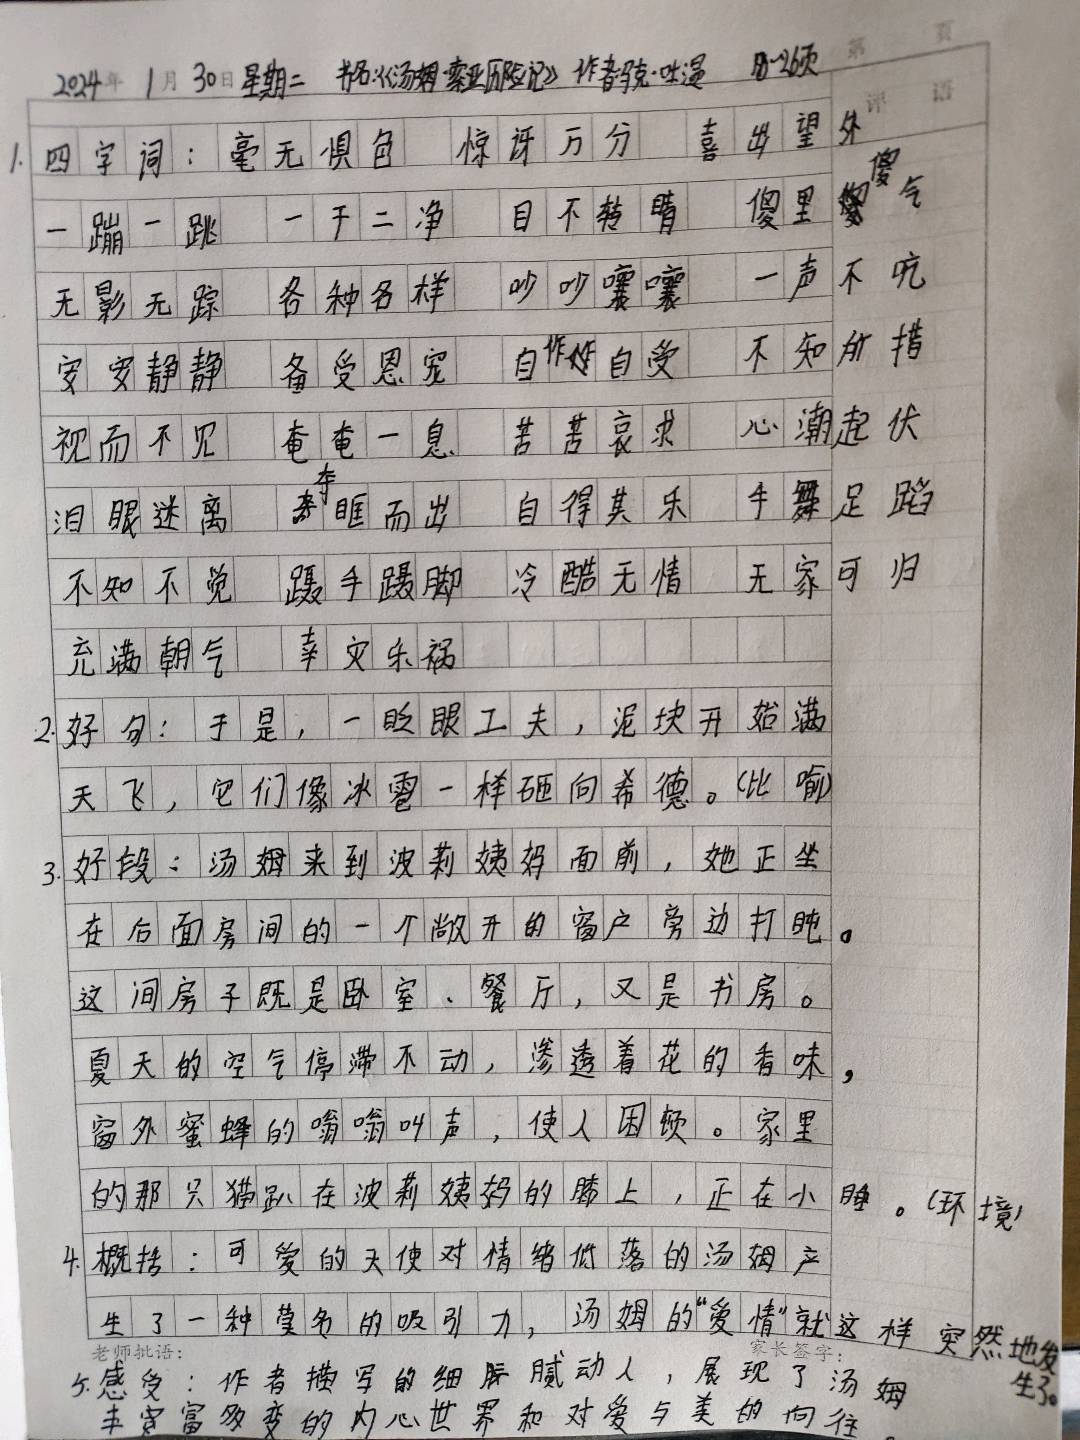 2024年 1月 30日 星期二 书名:《汤姆·索亚历险记》 作者:马克·吐温 18~26页
1. 四字词：毫无惧色 惊讶万分 喜出望外
一蹦一跳 一干二净 目不转睛 傻里傻气
无影无踪 各种各样 吵吵嚷嚷 一声不吭
安安静静 备受恩宠 自作自受 不知所措
视而不见 奄奄一息 苦苦哀求 心潮起伏
泪眼迷离 夺眶而出 自得其乐 手舞足蹈
不知不觉 蹑手蹑脚 冷酷无情 无家可归
充满朝气 幸灾乐祸
2. 好句：于是，一眨眼工夫，泥块开始满
天飞，它们像冰雹一样砸向希德。(比喻)
3. 好段：汤姆来到波莉姨妈面前，她正坐
在后面房间的一个敞开的窗户旁边打盹。
这间房子既是卧室、餐厅，又是书房。
夏天的空气停滞不动，渗透着花的香味，
窗外蜜蜂的嗡嗡叫声，使人困顿。家里
的那只猫趴在波莉姨妈的膝上，正在小睡。(环境)
4. 概括：可爱的天使对情绪低落的汤姆产
生了一种莫名的吸引力，汤姆的“爱情”就这样突然地发生了。
老师批语： 家长签字：
5. 感受：作者描写的细腻动人，展现了汤姆
丰富多变的内心世界和对爱与美的向往。